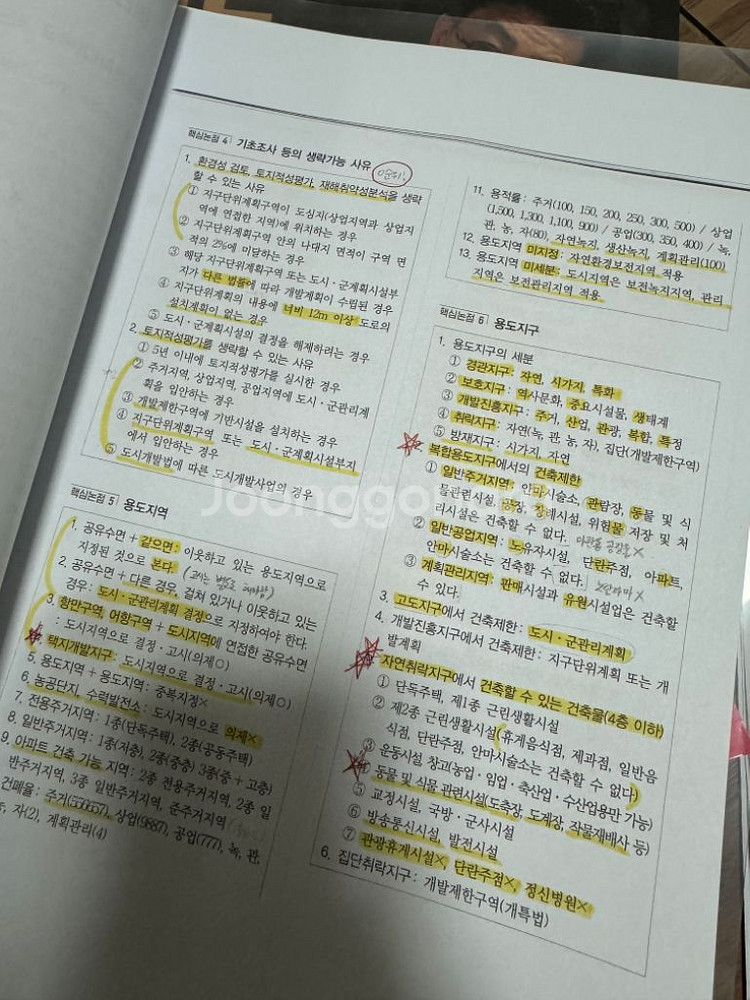 핵심논점 4 기초조사 등의 생략가능 사유
1. 환경성 검토, 토지적성평가, 재해취약성분석을 생략
할 수 있는 사유
① 지구단위계획구역이 도심지(상업지역과 상업지
역에 연접한 지역)에 위치하는 경우
② 지구단위계획구역 안의 나대지 면적이 구역 면
적의 2%에 미달하는 경우
③ 해당 지구단위계획구역 또는 도시·군계획시설부
지가 다른 법률에 따라 개발계획이 수립된 경우
④ 지구단위계획의 내용에 너비 12m 이상 도로의
설치계획이 없는 경우
⑤ 도시·군계획시설의 결정을 해제하려는 경우
2. 토지적성평가를 생략할 수 있는 사유
① 5년 이내에 토지적성평가를 실시한 경우
② 주거지역, 상업지역, 공업지역에 도시·군관리계
획을 입안하는 경우
③ 개발제한구역에 기반시설을 설치하는 경우
④ 지구단위계획구역 또는 도시·군계획시설부지
에서 입안하는 경우
⑤ 도시개발법에 따른 도시개발사업의 경우
핵심논점 5 용도지역
1. 공유수면 + 같으면: 이웃하고 있는 용도지역으로
지정된 것으로 본다.
2. 공유수면 + 다른 경우, 걸쳐 있거나 이웃하고 있는
경우: 도시·군관리계획 결정으로 지정하여야 한다.
3. 항만구역, 어항구역 + 도시지역에 연접한 공유수면
: 도시지역으로 결정·고시(의제○)
택지개발지구: 도시지역으로 결정·고시(의제○)
5. 용도지역 + 용도지역: 중복지정×
6. 농공단지, 수력발전소: 도시지역으로 의제×
7. 전용주거지역: 1종(단독주택), 2종(공동주택)
8. 일반주거지역: 1종(저층), 2종(중층) 3종(중+고층)
9. 아파트 건축 가능 지역: 2종 전용주거지역, 2종 일
반주거지역, 3종 일반주거지역, 준주거지역
건폐율: 주거(556657), 상업(9887), 공업(777), 녹, 관,
, 자(2), 계획관리(4)
11. 용적률: 주거(100, 150, 200, 250, 300, 500) / 상업
(1,500, 1,300, 1,100, 900) / 공업(300, 350, 400) / 녹,
관, 농, 자(80), 자연녹지, 생산녹지, 계획관리(100)
12. 용도지역 미지정: 자연환경보전지역 적용
13. 용도지역 미세분: 도시지역은 보전녹지지역, 관리
지역은 보전관리지역 적용
핵심논점 6 용도지구
1. 용도지구의 세분
① 경관지구: 자연, 시가지, 특화
② 보호지구: 역사문화, 중요시설물, 생태계
③ 개발진흥지구: 주거, 산업, 관광, 복합, 특정
④ 취락지구: 자연(녹, 관, 농, 자), 집단(개발제한구역)
⑤ 방재지구: 시가지, 자연
복합용도지구에서의 건축제한
① 일반주거지역: 안마시술소, 관람장, 동물 및 식
물관련시설, 공장, 장례시설, 위험물 저장 및 처
리시설은 건축할 수 없다.
② 일반공업지역: 노유자시설, 단란주점, 아파트,
안마시술소는 건축할 수 없다.
③ 계획관리지역: 판매시설과 유원시설업은 건축할
수 있다.
3. 고도지구에서 건축제한: 도시·군관리계획
4. 개발진흥지구에서 건축제한: 지구단위계획 또는 개
발계획
자연취락지구에서 건축할 수 있는 건축물(4층 이하)
① 단독주택, 제1종 근린생활시설
② 제2종 근린생활시설(휴게음식점, 제과점, 일반음
식점, 단란주점, 안마시술소는 건축할 수 없다)
③ 운동시설 창고(농업·임업·축산업·수산업용만 가능)
동물 및 식물 관련시설(도축장, 도계장, 작물재배사 등)
⑤ 교정시설, 국방·군사시설
⑥ 방송통신시설, 발전시설
⑦ 관광휴게시설×, 단란주점×, 정신병원×
6. 집단취락지구: 개발제한구역(개특법)